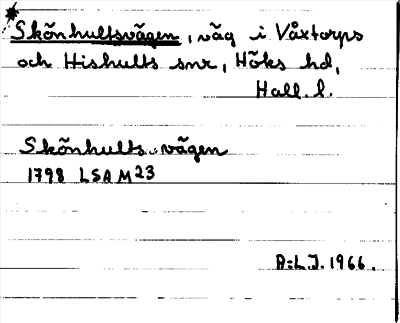 * Skönhultsvägen, väg i Våxtorps
och Hishults snr, Höks hd,
Hall. l.
Skönhults vägen
1798 LSA M23
A:L.J. 1966.